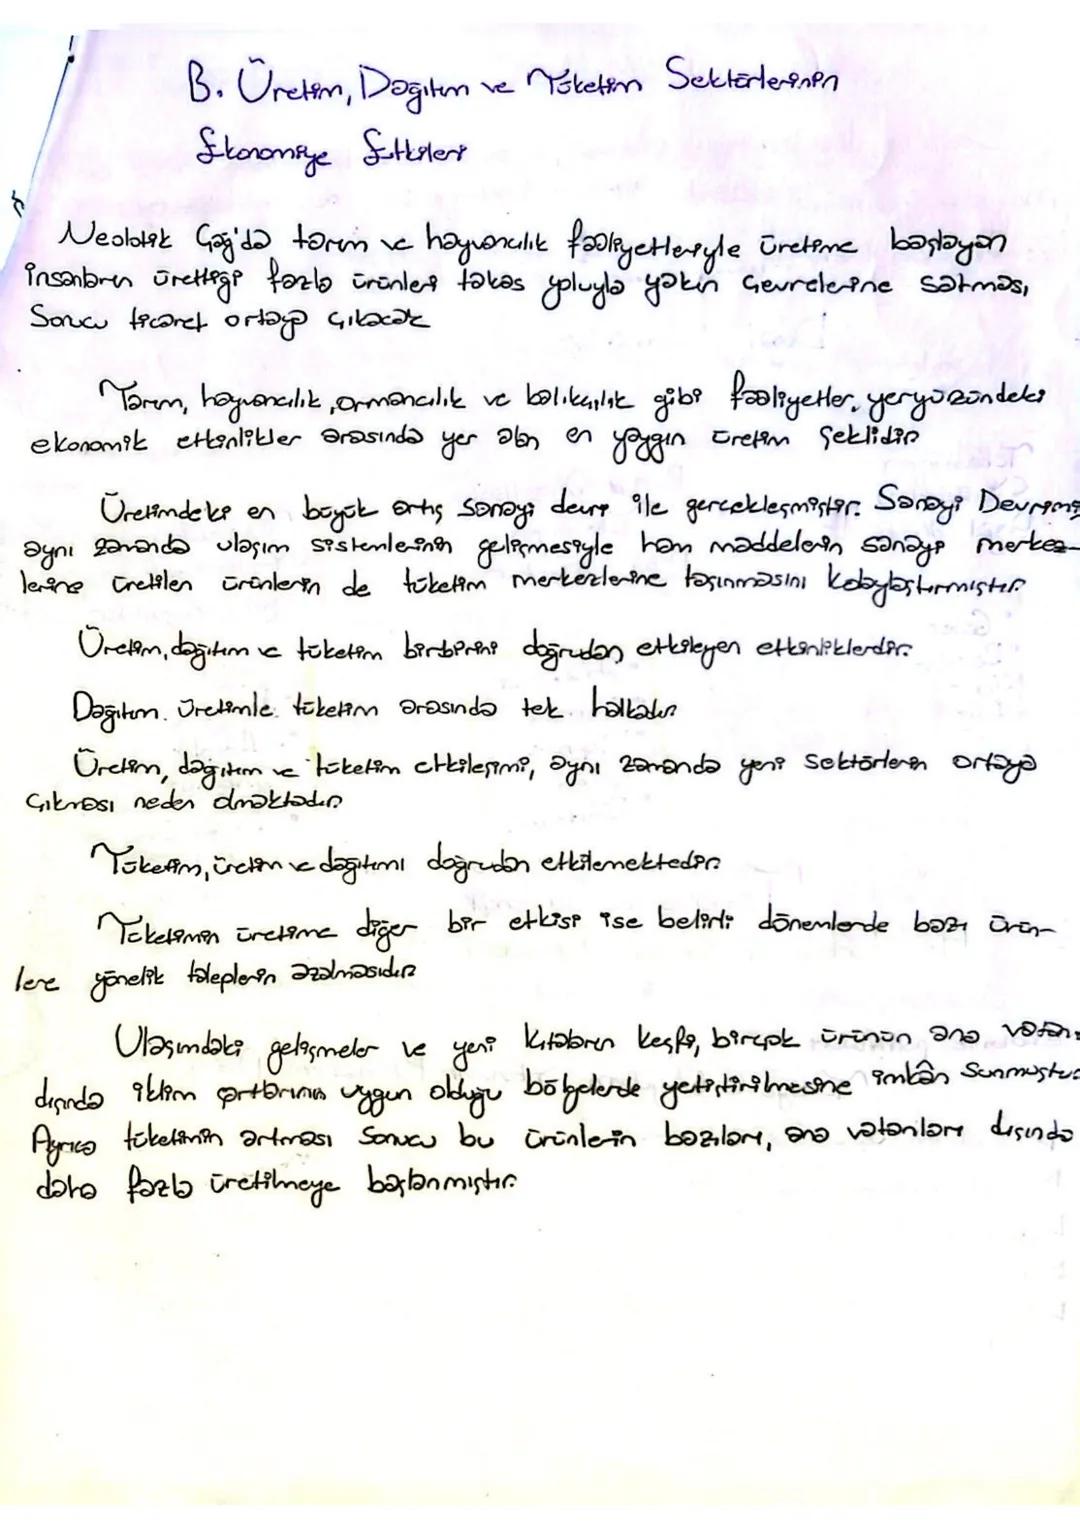 B. Üretim, Dağıtım ve Tüketim Sektörlerinin
Ekonomiye Etkileri
Neolotik Çağ'da tarım ve hayvancılık faaliyetleriyle üretime başlayan
insanların ürettiği fazla ürünleri takas yoluyla yakın çevrelerine satması
Sonucu ticaret ortaya çıkacak
Tarım, hayvancılık, ormancılık ve balıkçılık gibi faaliyetler, yeryüzündeki
ekonomik etkinlikler arasında yer alan en yaygın üretim Şeklidir
Üretimdeki en büyük artış sanayi devri ile gercekleşmiştir. Sanayi Devrimi
aynı zamanda ulaşım sistemlerinin gelişmesiyle ham maddelerin sanayi merkez-
lerine üretilen ürünlerin de tüketim merkezlerine taşınmasını kolaylaştırmıştır.
Üretim, dağıtım ve tüketim birbirini doğrudan etkileyen etkinliklerdir.
Dağıtım. Üretimle tüketim arasında tek halkadır
Üretim, dağıtım ve tüketim etkileşimi, aynı zamanda yeni sektörlerin ortaya
Çıkması neden olmaktadır
Tüketim, üretim ve dağıtımı doğrudan etkilemektedir.
Tüketimin üretime diğer bir etkisi ise belirli dönemlerde bazı ürün-
lere yönelik taleplerin azalmasıdır
Ulaşımdaki gelişmeler ve yeni kıtaların keşfi, birçok ürünün ana vatanı
dışında iklim şartlarının uygun olduğu bölgelerde yetiştirilmesine imkân Sunmuştur
Ayrıca tüketimin artması Sonucu bu ürünlerin bazıları, ana vatanları dışında
daha fazla üretilmeye başlanmıştır.